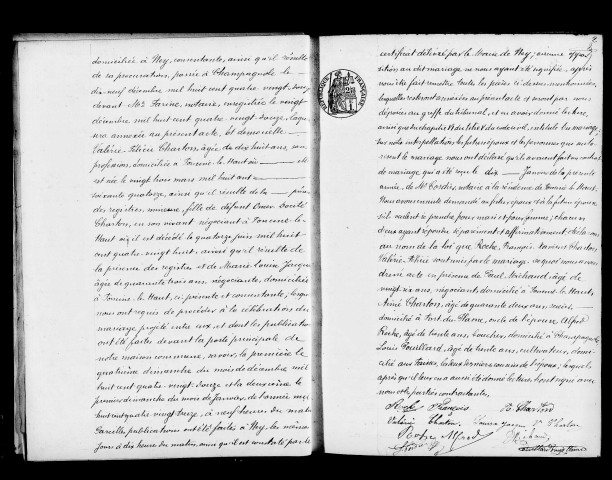 domiciliée à Ney, consentante, ainsi qu'il résulte
de sa procuration, passée à Champagnole le
dix neuf décembre mil huit cent quatre vingt douze,
devant Me Farine, notaire, enregistrée le vingt
décembre mil huit cent quatre-vingt-douze, laquelle
sera annexée au présent acte, et demoiselle
Valérie Félicie Charton, âgée de dix huit ans, sans
profession, domiciliée à Foncine-le-Haut où
est née le vingt trois mars mil huit cent
soixante quatorze, ainsi qu'il résulte de la
des registres, mineure, fille de défunt Omer
Charton, en son vivant négociant à Foncine-le-
Haut où il est décédé le quatorze juin mil huit
cent quatre-vingt-huit, ainsi qu'il résulte de
la présence des registres et de Marie Louise Jacquin
âgée de quarante trois ans, négociante, domiciliée
à Foncine-le-Haut, ci présente et consentante; lesquels
nous ont requis de procéder à la célébration du
mariage projeté entre eux, et dont les publications
ont été faites devant la porte principale de
notre maison commune, savoir, la première le
quatrième dimanche du mois de décembre mil
huit cent quatre-vingt-douze et la deuxième le
premier dimanche du mois de janvier, de l'année mil
huit cent quatre vingt treize, à neuf heures du matin
Pareilles publications ont été faites à Ney, les mêmes
jours à dix heures du matin, ainsi qu'il est constaté par le
certificat délivré par le Maire de Ney; aucune oppo-
sition au dit mariage ne nous ayant été signifiée, après
nous être fait remettre toutes les pièces ci-dessus mentionnées,
lesquelles resteront annexées au présent acte et seront par nous
déposées au greffe du tribunal, et en avoir donné lecture,
ainsi que du chapitre VI du titre V du code civil, intitulé du mariage,
sur notre interpellation les futurs époux et les personnes qui auto-
risent le mariage nous ont déclaré qu'il avait été passé un contrat
de mariage qui a été reçu le dix Janvier de la présente
année, de Me Cordier, notaire à la résidence de Foncine-le-Haut.
Nous avons ensuite demandé au futur époux et à la future épouse
s'ils veulent se prendre pour mari et pour femme; chacun
d'eux ayant répondu séparément et affirmativement déclarons
au nom de la loi que Roche, François Xavier et Charton,
Valérie Félicie sont unis par le mariage. De quoi nous avons
dressé acte en présence de Paul Michaud, âgé de
vingt six ans, négociant domicilié à Foncine-le-Haut,
Aimé Charton, âgé de quarante deux ans,
domicilié à Fort du Plasne, oncle de l'épouse, Alfred
Roche, âgé de trente ans, boucher, domicilié à Champagnole
Louis Pouillard, âgé de trente ans, cultivateur, domi-
cilié aux les deux derniers cousins de l'époux, lesquels
après qu'il leur en a aussi été donné lecture ont signé avec
nous et les parties contractantes.
Roche François A. Charton
Valérie Charton Louise Jacquin Ve Charton
Roche Alfred Michaud